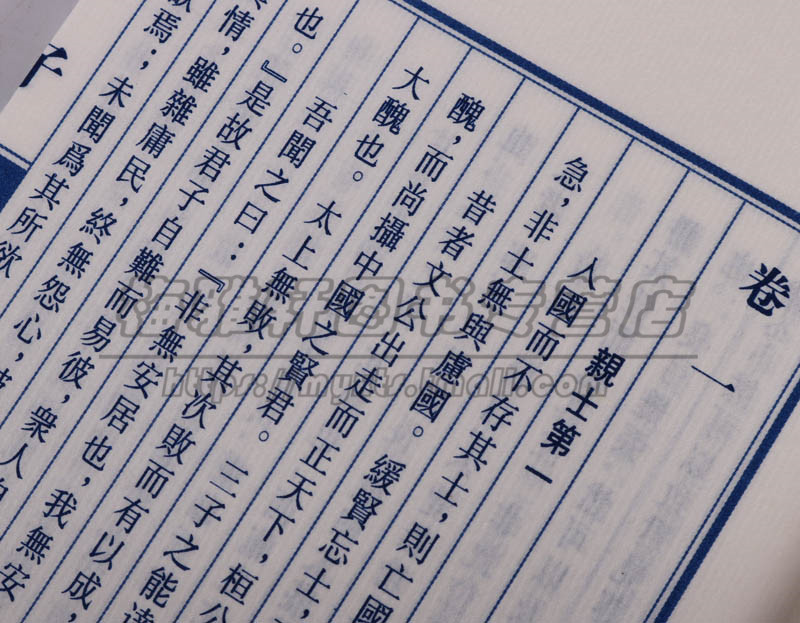 卷一
親士第一
入國而不存其士，則亡國
急，非士無與慮國。緩賢忘士，
昔者文公出走而正天下，桓公
醜，而尚攝中國之賢君。三子之能達
大醜也。太上無敗，其次敗而有以成，
吾聞之曰：『非無安居也，我無安
也。』是故君子自難而易彼，衆人自
情，雖雜庸民，終無怨心，
焉；未聞爲其所欲
子